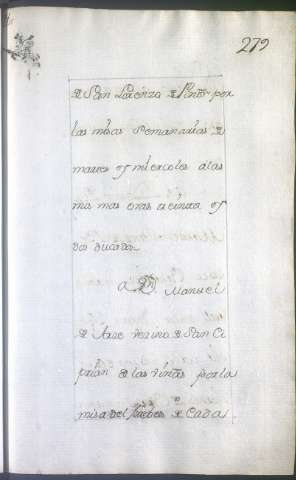 279
de San Lorenzo de Pent^s por
las misas semanarias de
martes y miercoles alas
mis mas oras acinco y
dos ducados
A D^n Manuel
de Arze vezino de San Ci
prian de las viñas por la
misa del Jueves de cada